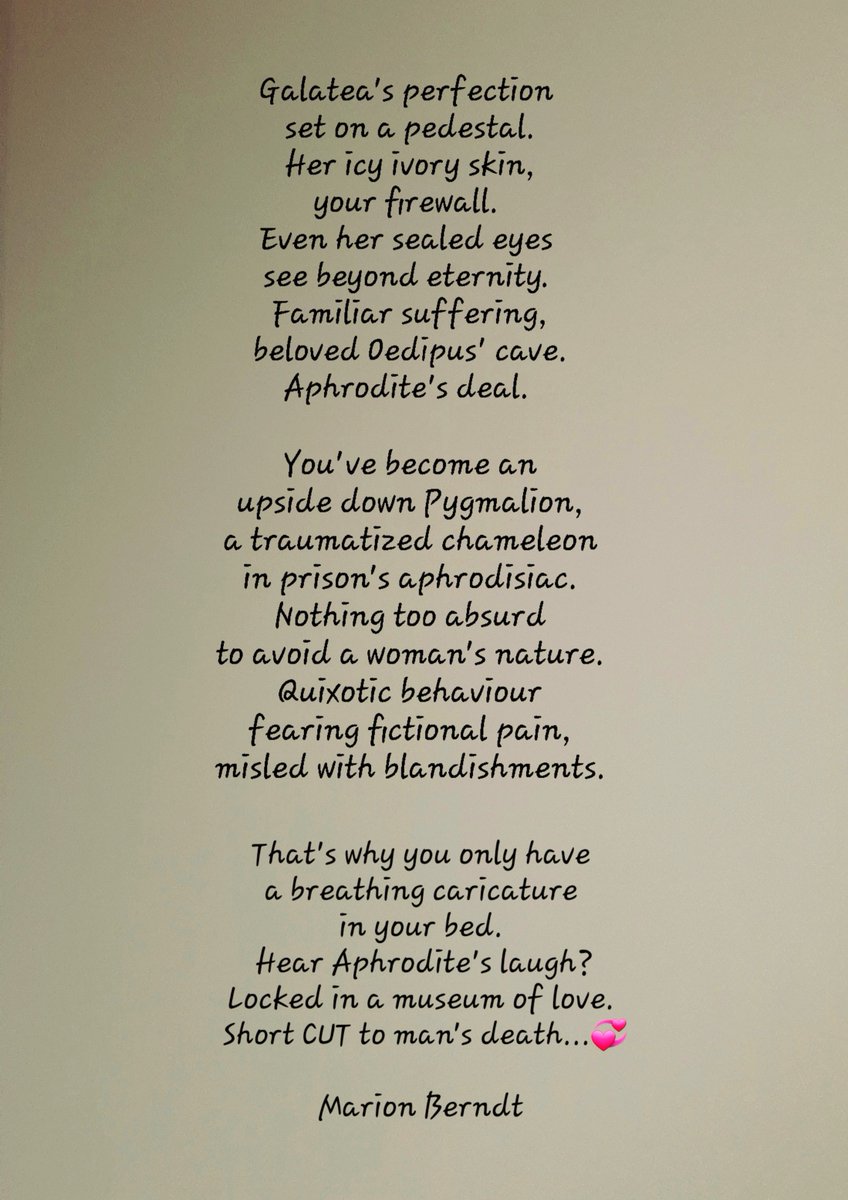 Galatea's perfection
set on a pedestal.
Her icy ivory skin,
your firewall.
Even her sealed eyes
see beyond eternity.
Familiar suffering,
beloved Oedipus' cave.
Aphrodite's deal.
You've become an
upside down Pygmalion,
a traumatized chameleon
in prison's aphrodisiac.
Nothing too absurd
to avoid a woman's nature.
Quixotic behaviour
fearing fictional pain,
misled with blandishments.
That's why you only have
a breathing caricature
in your bed.
Hear Aphrodite's laugh?
Locked in a museum of love.
Short CUT to man's death...💞
Marion Berndt